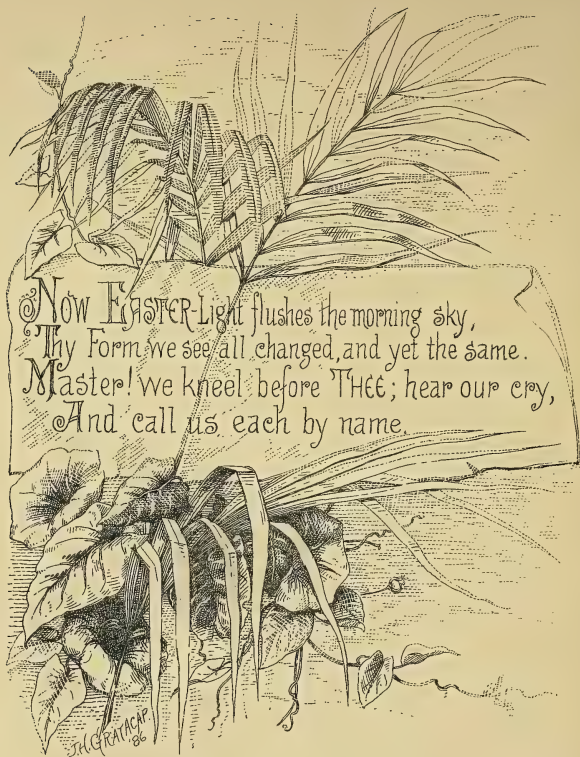 Now Easter-Light flushes the morning sky,
Thy Form we see all changed, and yet the same.
Master! we kneel before THEE; hear our cry,
And call us each by name.
J.H. GRATACAP.
86